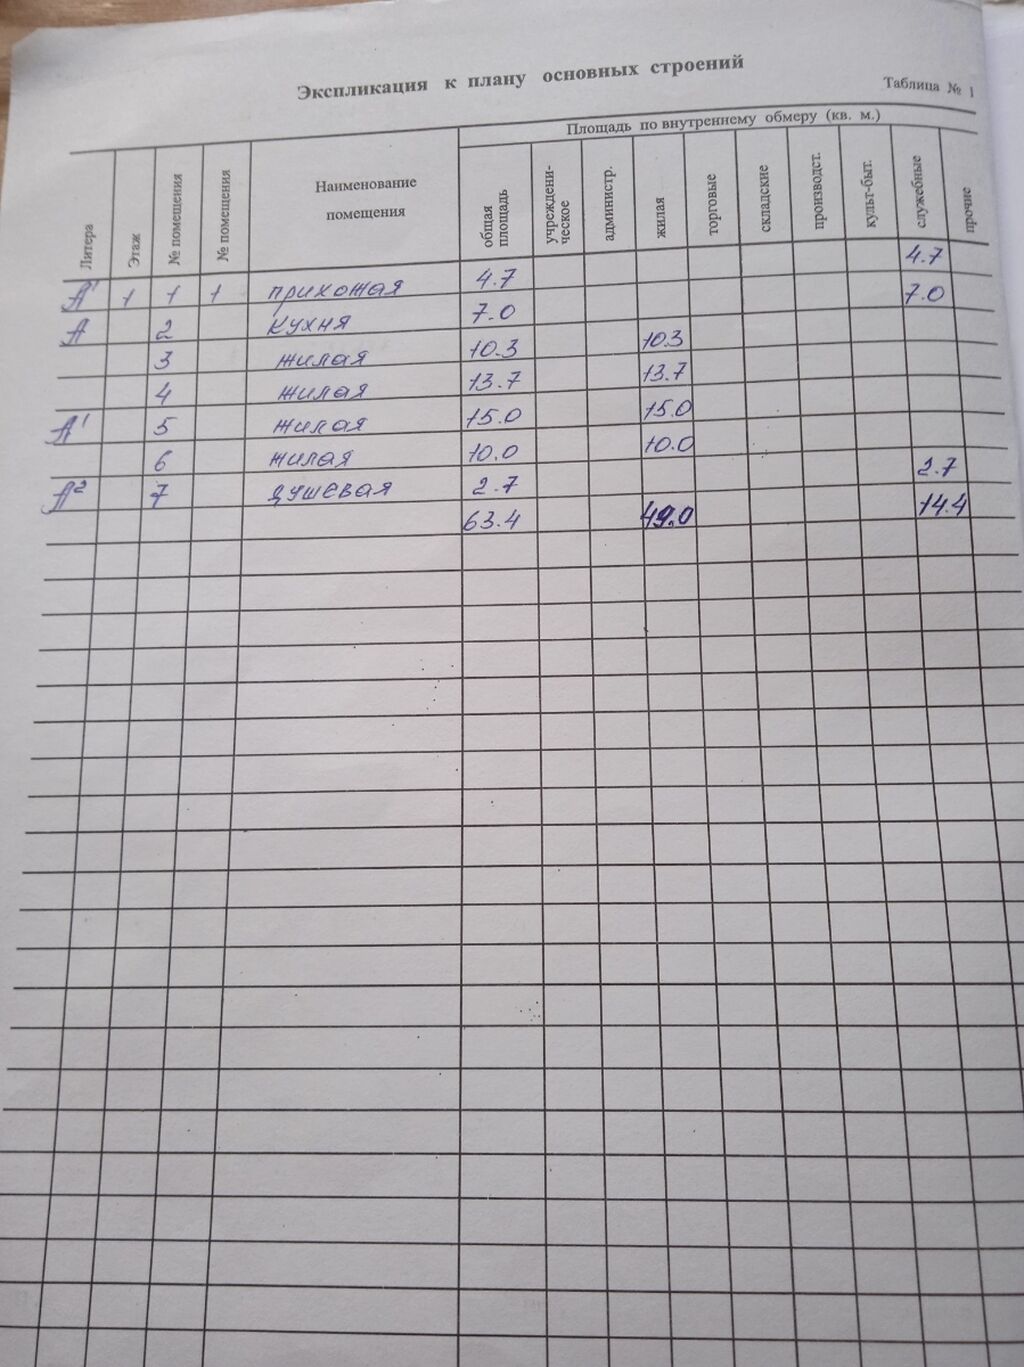 Экспликация к плану основных строений
Таблица № 1
Литера
Этаж
№ помещения
№ помещения
Наименование помещения
Площадь по внутреннему обмеру (кв. м.)
общая площадь
учреждени-ческое
администр.
жилая
торговые
складские
производст.
культ-быт.
служебные
прочие
А¹ 1 1 1 прихожая 4.7 4.7
А 2 кухня 7.0 7.0
3 жилая 10.3 10.3
4 жилая 13.7 13.7
А¹ 5 жилая 15.0 15.0
6 жилая 10.0 10.0
А² 7 душевая 2.7 2.7
63.4 49.0 14.4